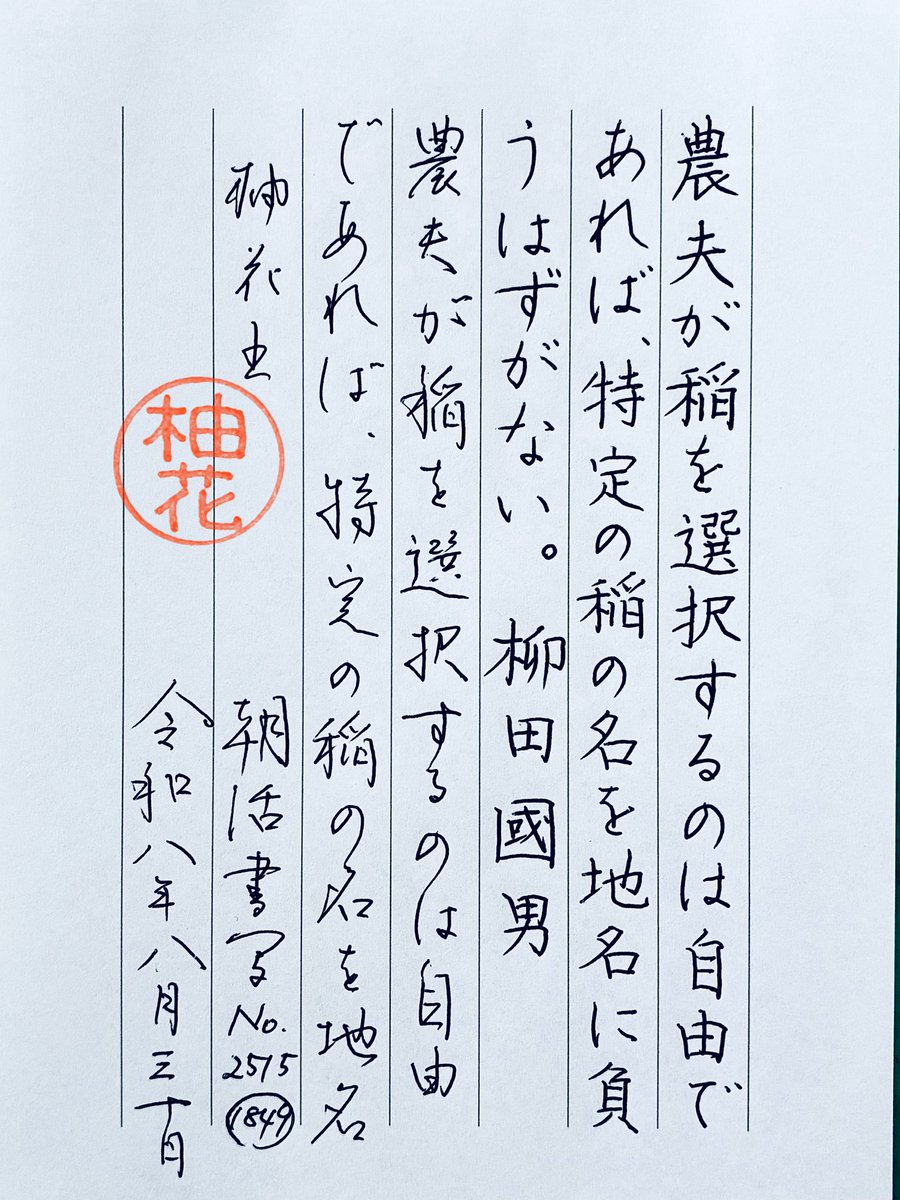 農夫が稲を選択するのは自由で
あれば、特定の稲の名を地名に負
うはずがない。 柳田國男
農夫が稲を選択するのは自由
であれば、特定の稲の名を地名
柚花主 朝活書写No.2515 1849
柚花
令和八年八月三十日